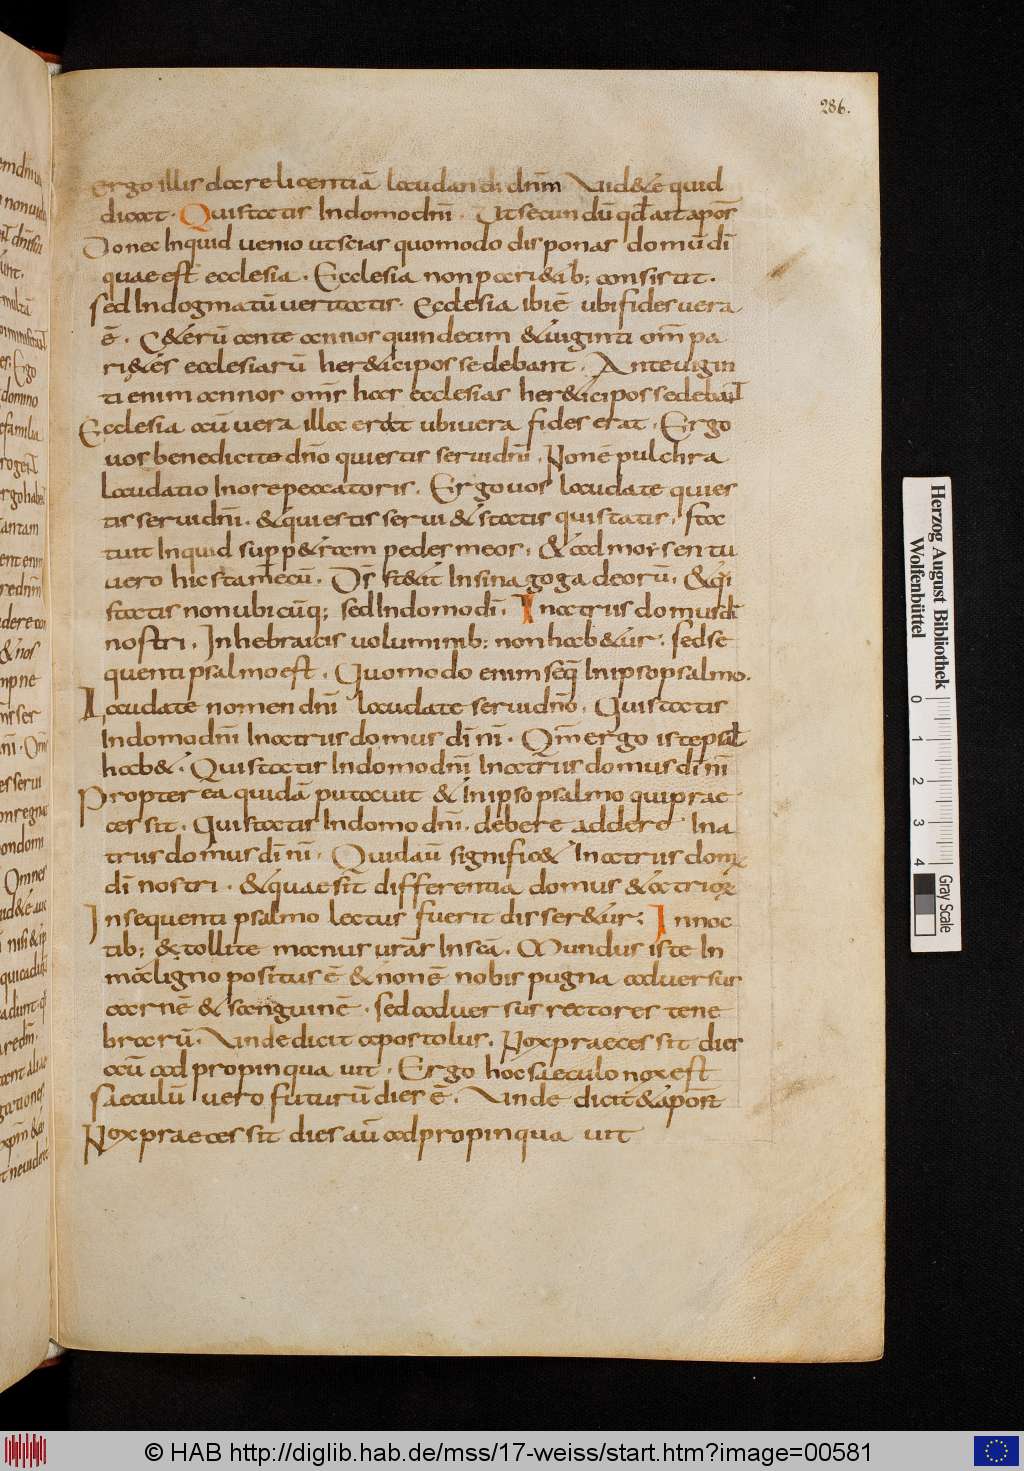 286.
ergo illis dare licentiā laudandi dnm̄ Vid&e quid
dicat. Qui statis In domo dnī. Ut secundū qd̄ ait apos̄
Donec Inquid uenio ut scias quomodo disponas domū dī
quae est ecclesia. Ecclesia non pari&ib; consistit.
sed In dogmatū ueritatis. Ecclesia ibi ē ubi fides uera
ē. C&erū ante annos quindecim &uiginti om̄ pa
ri&es ecclesiarū her&ici possedebant. Ante uigin
ti enim annos oms̄ has ecclesias her&ici possedebant
Ecclesia aū uera illic erat ubi uera fides erat. Ergo
uos benedicite dn̄o qui estis serui dnī. Non ē pulchra
laudatio In ore peccatoris. Ergo uos laudate qui es
tis serui dnī. &qui estis serui &statis qui statis, sta
tuit Inquid supp&ram pedes meos, &ad moisen tu
uero hic sta mecū. Ds̄ st&it In sinagoga deorū, &qui
statis non ubicūq; sed In domo dī. In atriis domus dī
nostri. In hebraicis uoluminib; non hab&ur; sed se
quenti psalmo est. Quomodo enim seq̄ In ipso psalmo.
Laudate nomen dnī laudate serui dn̄o, Qui statis
In domo dnī In atriis domus dī nī. Qm̄ ergo iste psal
hab&. Qui statis In domo dnī In atriis domus dī nī
Propterea quidā putauit & In ipso psalmo qui prae
cessit. Qui statis In domo dnī, debere addere In a
triis domus dī nī, Quid aū signific& In atriis domꝰ
dī nostri. &quae sit differentia domus &atrioꝝ
In sequenti psalmo lectus fuerit disser&ur; In noc
tib; &tollite manus urās In scā. Mundus iste In
maligno positus ē & non ē nobis pugna aduersus
carnē & sanguinē. sed aduersus rectores tene
brarū. Vnde dicit apostolus. Nox praecessit dies
aū adpropinquauit. Ergo hoc saeculo nox est
saeculū uero futurū dies ē. Vnde dicit &apost
Nox praecessit dies aū adpropinquauit
Herzog August Bibliothek
Wolfenbüttel
0 1 2 3 4
Gray Scale
© HAB http://diglib.hab.de/mss/17-weiss/start.htm?image=00581